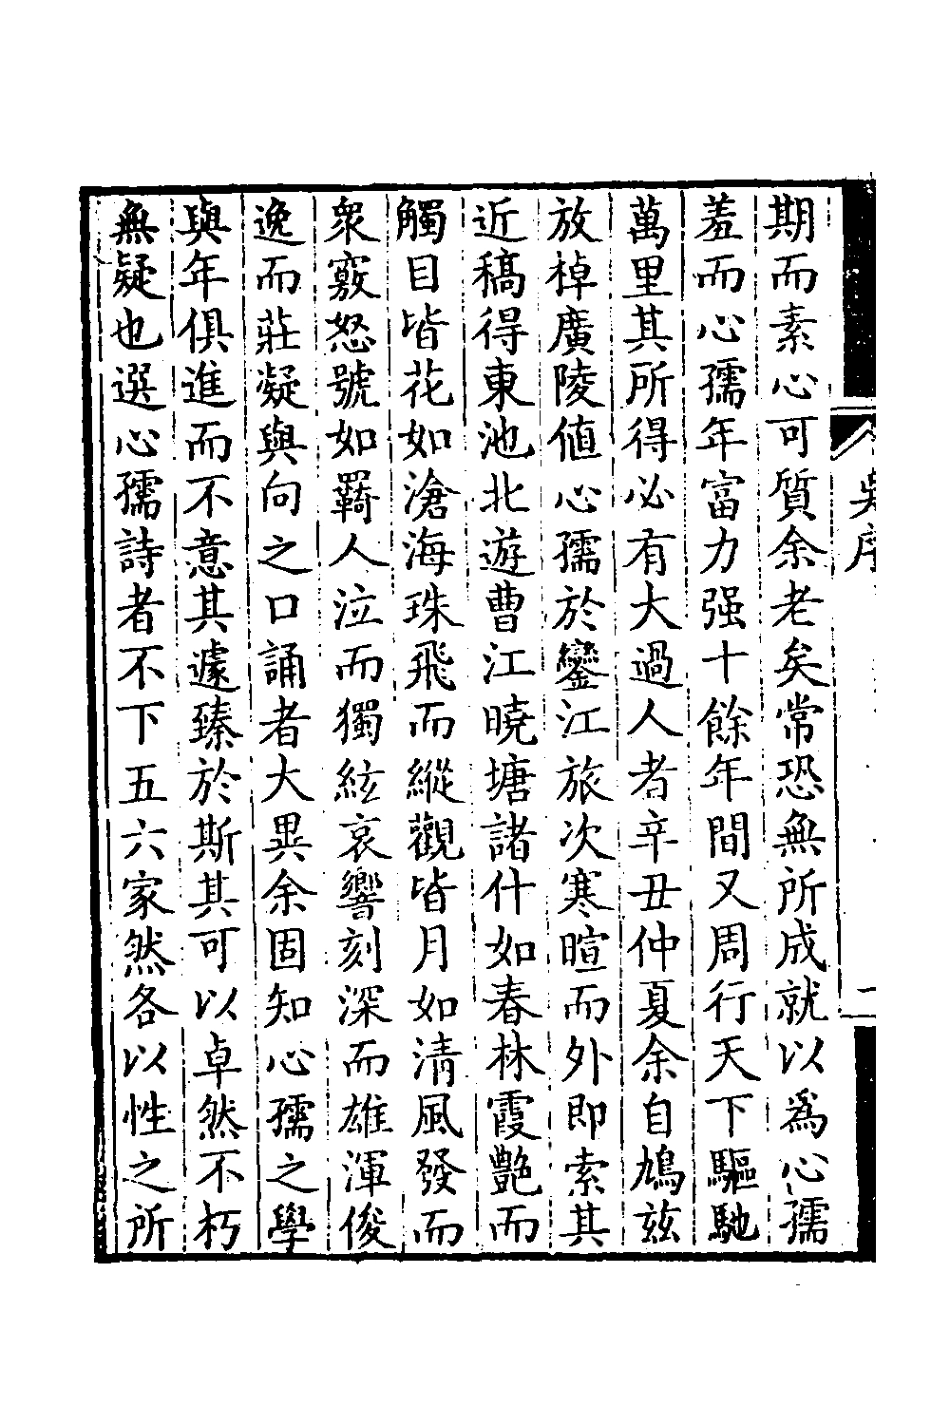 期而素心可質余老矣常恐無所成就以爲心孺
羞而心孺年富力强十餘年間又周行天下驅馳
萬里其所得必有大過人者辛丑仲夏余自鳩兹
放棹廣陵値心孺於鑾江旅次寒暄而外即索其
近稿得東池北遊曹江曉塘諸什如春林霞艷而
觸目皆花如滄海珠飛而縱觀皆月如清風發而
衆竅怒號如羇人泣而獨絃哀響刻深而雄渾俊
逸而莊凝與向之口誦者大異余固知心孺之學
與年俱進而不意其遽臻於斯其可以卓然不朽
無疑也選心孺詩者不下五六家然各以性之所
吳序
二